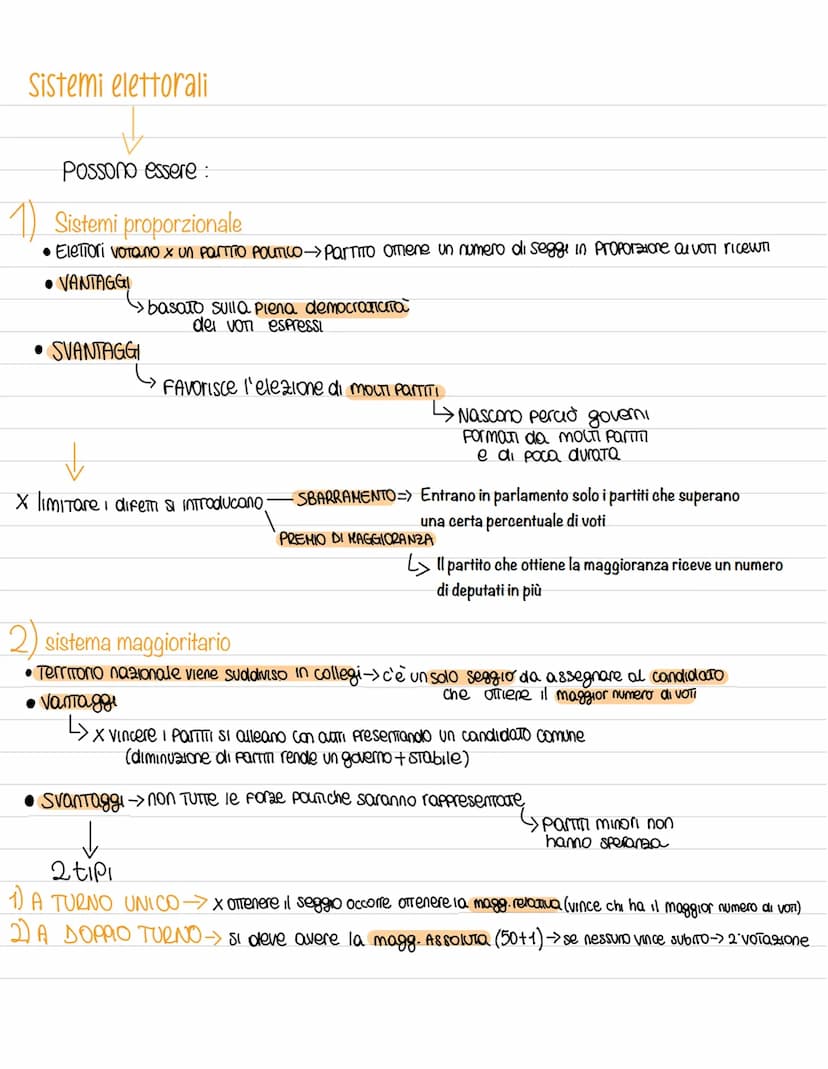 Sistemi elettorali
Possono essere :
1) Sistemi proporzionale
• Elettori votano x un partito politico → Partito ottiene un numero di seggi in proporzione ai voti ricevuti
• VANTAGGI
↳ basato sulla piena democraticità
dei voti espressi
• SVANTAGGI
↳ FAVORISCE l'elezione di molti partiti
↳ Nascono perciò governi
formati da molti partiti
e di poca durata
x limitare i difetti si introducano — SBARRAMENTO => Entrano in parlamento solo i partiti che superano
una certa percentuale di voti
PREMIO DI MAGGIORANZA
↳ Il partito che ottiene la maggioranza riceve un numero
di deputati in più
2) sistema maggioritario
• Territorio nazionale viene suddiviso in collegi → c'è un solo seggio da assegnare al candidato
che ottiene il maggior numero di voti
• Vantaggi
↳ x vincere i partiti si alleano con altri presentando un candidato comune
(diminuzione di partiti rende un governo + stabile)
• Svantaggi → non tutte le forze politiche saranno rappresentate
↳ partiti minori non
hanno speranza
2 tipi
1) A TURNO UNICO → x ottenere il seggio occorre ottenere la magg. relativa (vince chi ha il maggior numero di voti)
2) A DOPPIO TURNO → si deve avere la magg. ASSOLUTA (50+1) → se nessuno vince subito → 2° votazione